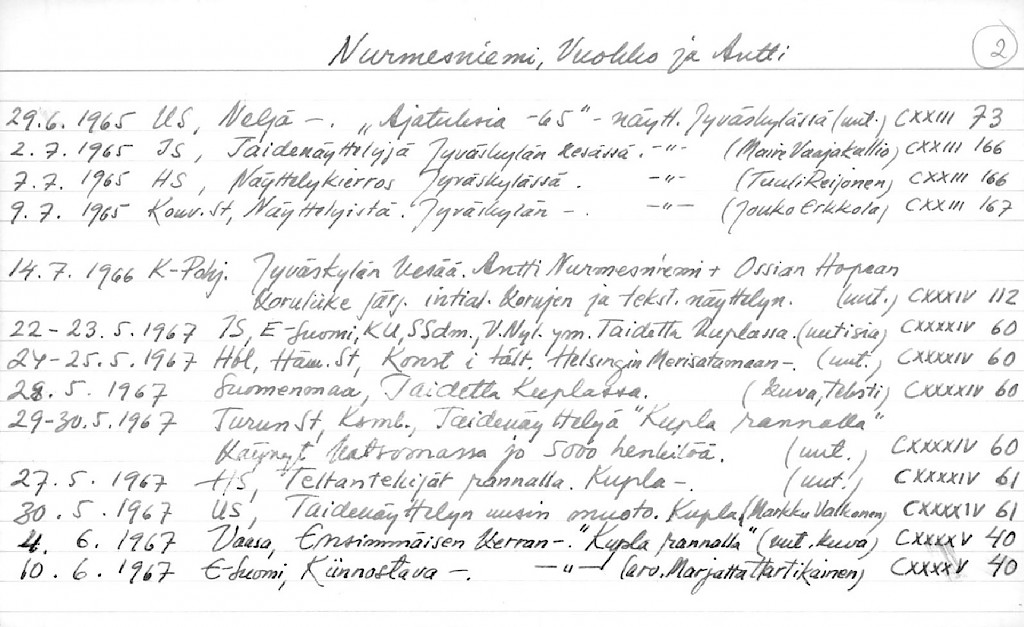 Nurmesniemi, Vuokko ja Antti 2
29.6. 1965 US, Neljä –. „Ajatuksia -65" - näytt. Jyväskylässä (uut.) CXXIII 73
2. 7. 1965 IS, Taidenäyttelyjä Jyväskylän Kesässä. -"- (Maire Vaajakallio) CXXIII 166
7.7. 1965 HS, Näyttelykierros Jyväskylässä. -"- (Tuuli Reijonen) CXXIII 166
9. 7. 1965 Kouv. St, Näyttelyistä. Jyväskylän –. -"- (Jouko Erkkola) CXXIII 167
14. 7. 1966 K-Pohj. Jyväskylän Kesää. Antti Nurmesniemi + Ossian Hopean
Koruliike järj. intial. Korujen ja tekst. näyttelyn. (uut.) CXXXIV 112
22-23.5.1967 IS, E-Suomi, KU, SSdm., V.Nyl. ym. Taidetta Kuplassa. (uutisia) CXXXXIV 60
24-25.5.1967 Hbl, Häm. St, Konst i tält. Helsingin Merisatamaan –. (uut.) CXXXXIV 60
28. 5. 1967 Suomenmaa, Taidetta Kuplassa. (kuva, teksti) CXXXXIV 60
29-30.5.1967 Turun St, Komb., Taidenäyttelyä "Kupla rannalla"
Käynyt Katsomassa jo 5000 henkilöä. (uut.) CXXXXIV 60
27. 5. 1967 HS, Teltantekijät rannalla. Kupla –. (uut.) CXXXXIV 61
30. 5. 1967 US, Taidenäyttelyn uusin muoto. Kupla (Markku Valkonen) CXXXXIV 61
4. 6. 1967 Vaasa, Ensimmäisen Kerran –. "Kupla rannalla" (uut. kuva) CXXXXV 40
10. 6. 1967 E-Suomi, Kiinnostava –. -"- (arv. Marjatta Hartikainen) CXXXXV 40